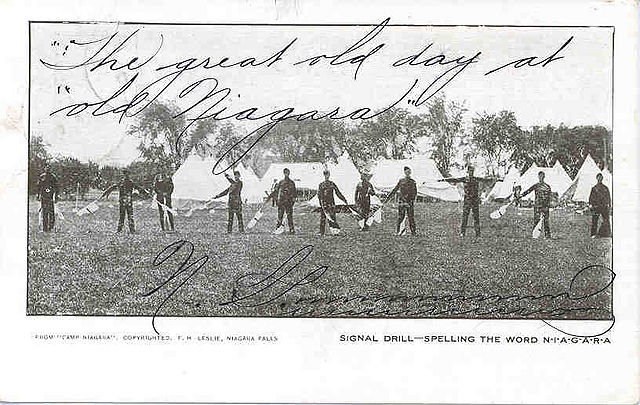 "The great old day at
"old Niagara"
FROM "CAMP NIAGARA". COPYRIGHTED. F. H. LESLIE, NIAGARA FALLS
SIGNAL DRILL—SPELLING THE WORD N-I-A-G-A-R-A